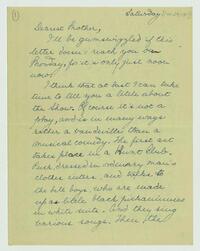 ①
Saturday
Dearest Mother,
I'll be gumswizzled if this
letter doesn't reach you on
Monday, for it's only just noon
now!
I think that at last I can take
time to tell you a little about
the show. Of course it's not a
play, and is in many ways
rather a vaudeville than a
musical comedy. The first act
takes place in a Hunt Club.
dressed in ordinary man's
clothes enters, and
the bell boys, who are made
up as little black pickaninnies
in white suits. And they sing
various songs. Then, the